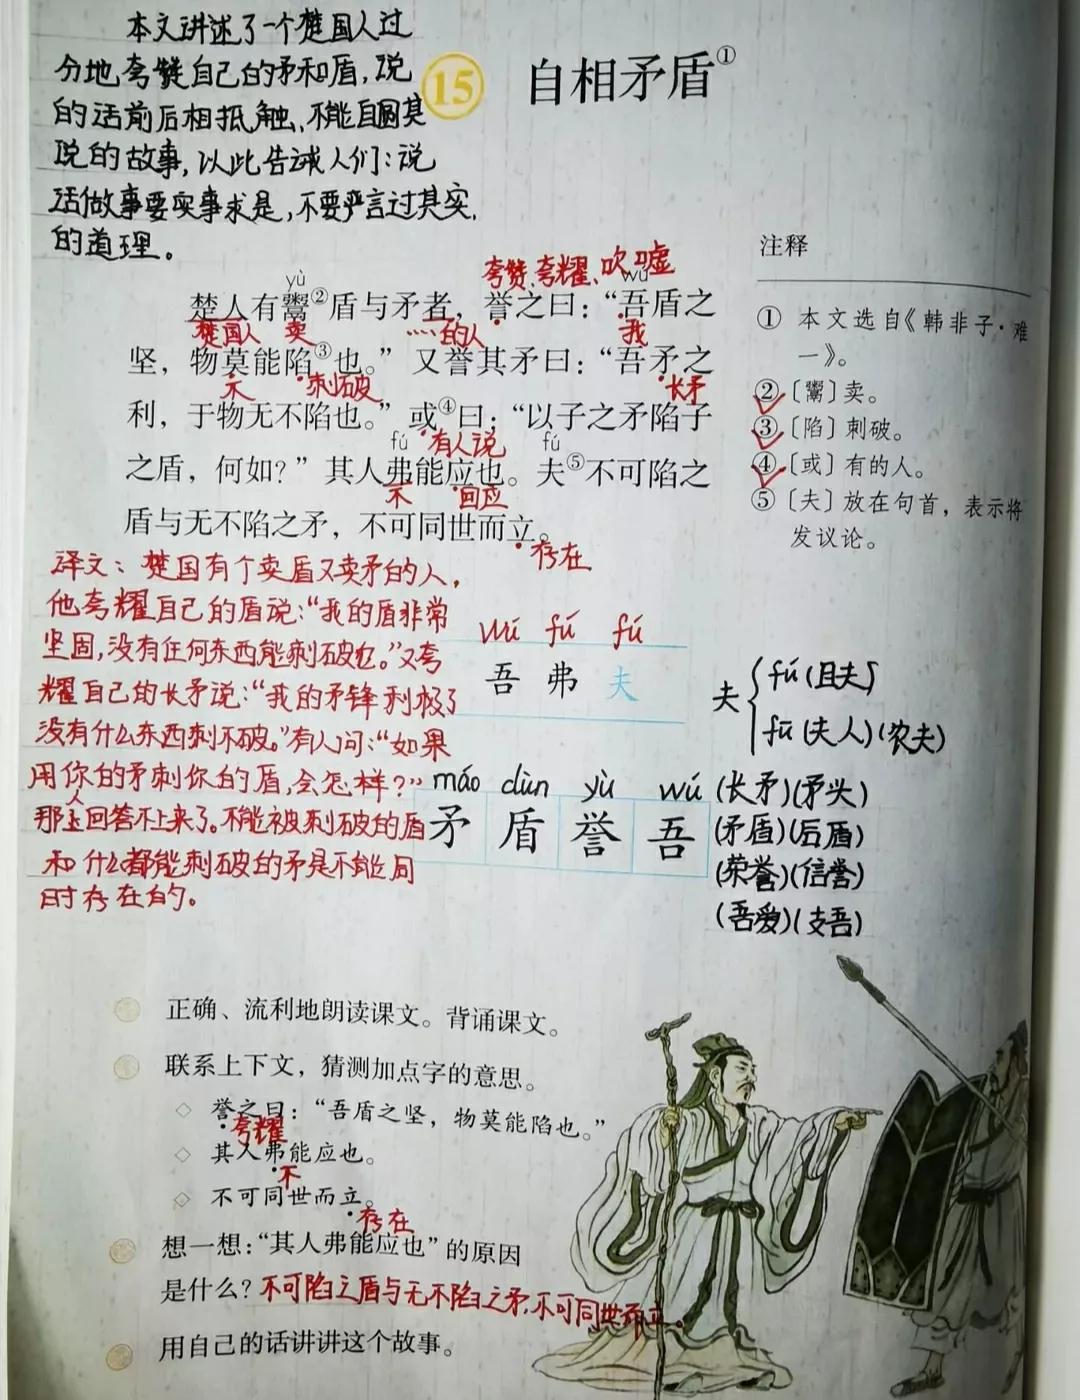 本文讲述了一个楚国人过
分地夸赞自己的矛和盾,说
的话前后相抵触、不能自圆其
说的故事,以此告诫人们:说
话做事要实事求是,不要严言过其实,
的道理。
15
自相矛盾①
夸赞、夸耀、吹嘘
yù
wú
楚人有鬻②盾与矛者,誉之曰:“吾盾之
楚国人 卖 ……的人 我
坚,物莫能陷③也。”又誉其矛曰:“吾矛之
不 刺破 长矛
利,于物无不陷也。”或④曰:“以子之矛陷子
fú 有人说 fú
之盾,何如?”其人弗能应也。夫⑤不可陷之
不 回应
盾与无不陷之矛,不可同世而立。
存在
注释
① 本文选自《韩非子·难
一》。
②〔鬻〕卖。
③〔陷〕刺破。
④〔或〕有的人。
⑤〔夫〕放在句首,表示将
发议论。
译文:楚国有个卖盾又卖矛的人,
他夸耀自己的盾说:“我的盾非常
坚固,没有任何东西能刺破它。”又夸
耀自己的长矛说:“我的矛锋利极了
没有什么东西刺不破。”有人问:“如果
用你的矛刺你的盾,会怎样?”
那人回答不上来了。不能被刺破的盾
和什么都能刺破的矛是不能同
时存在的。
wú fú fú
吾 弗 夫
夫 fú (且夫)
fū (夫人)(农夫)
máo dùn yù wú
矛 盾 誉 吾
(长矛)(矛头)
(矛盾)(后盾)
(荣誉)(信誉)
(吾爱)(支吾)
正确、流利地朗读课文。背诵课文。
联系上下文,猜测加点字的意思。
◇ 誉之曰:“吾盾之坚,物莫能陷也。”
夸耀
◇ 其人弗能应也。
不
◇ 不可同世而立。
存在
想一想:“其人弗能应也”的原因
是什么? 不可陷之盾与无不陷之矛,不可同世而立。
用自己的话讲讲这个故事。